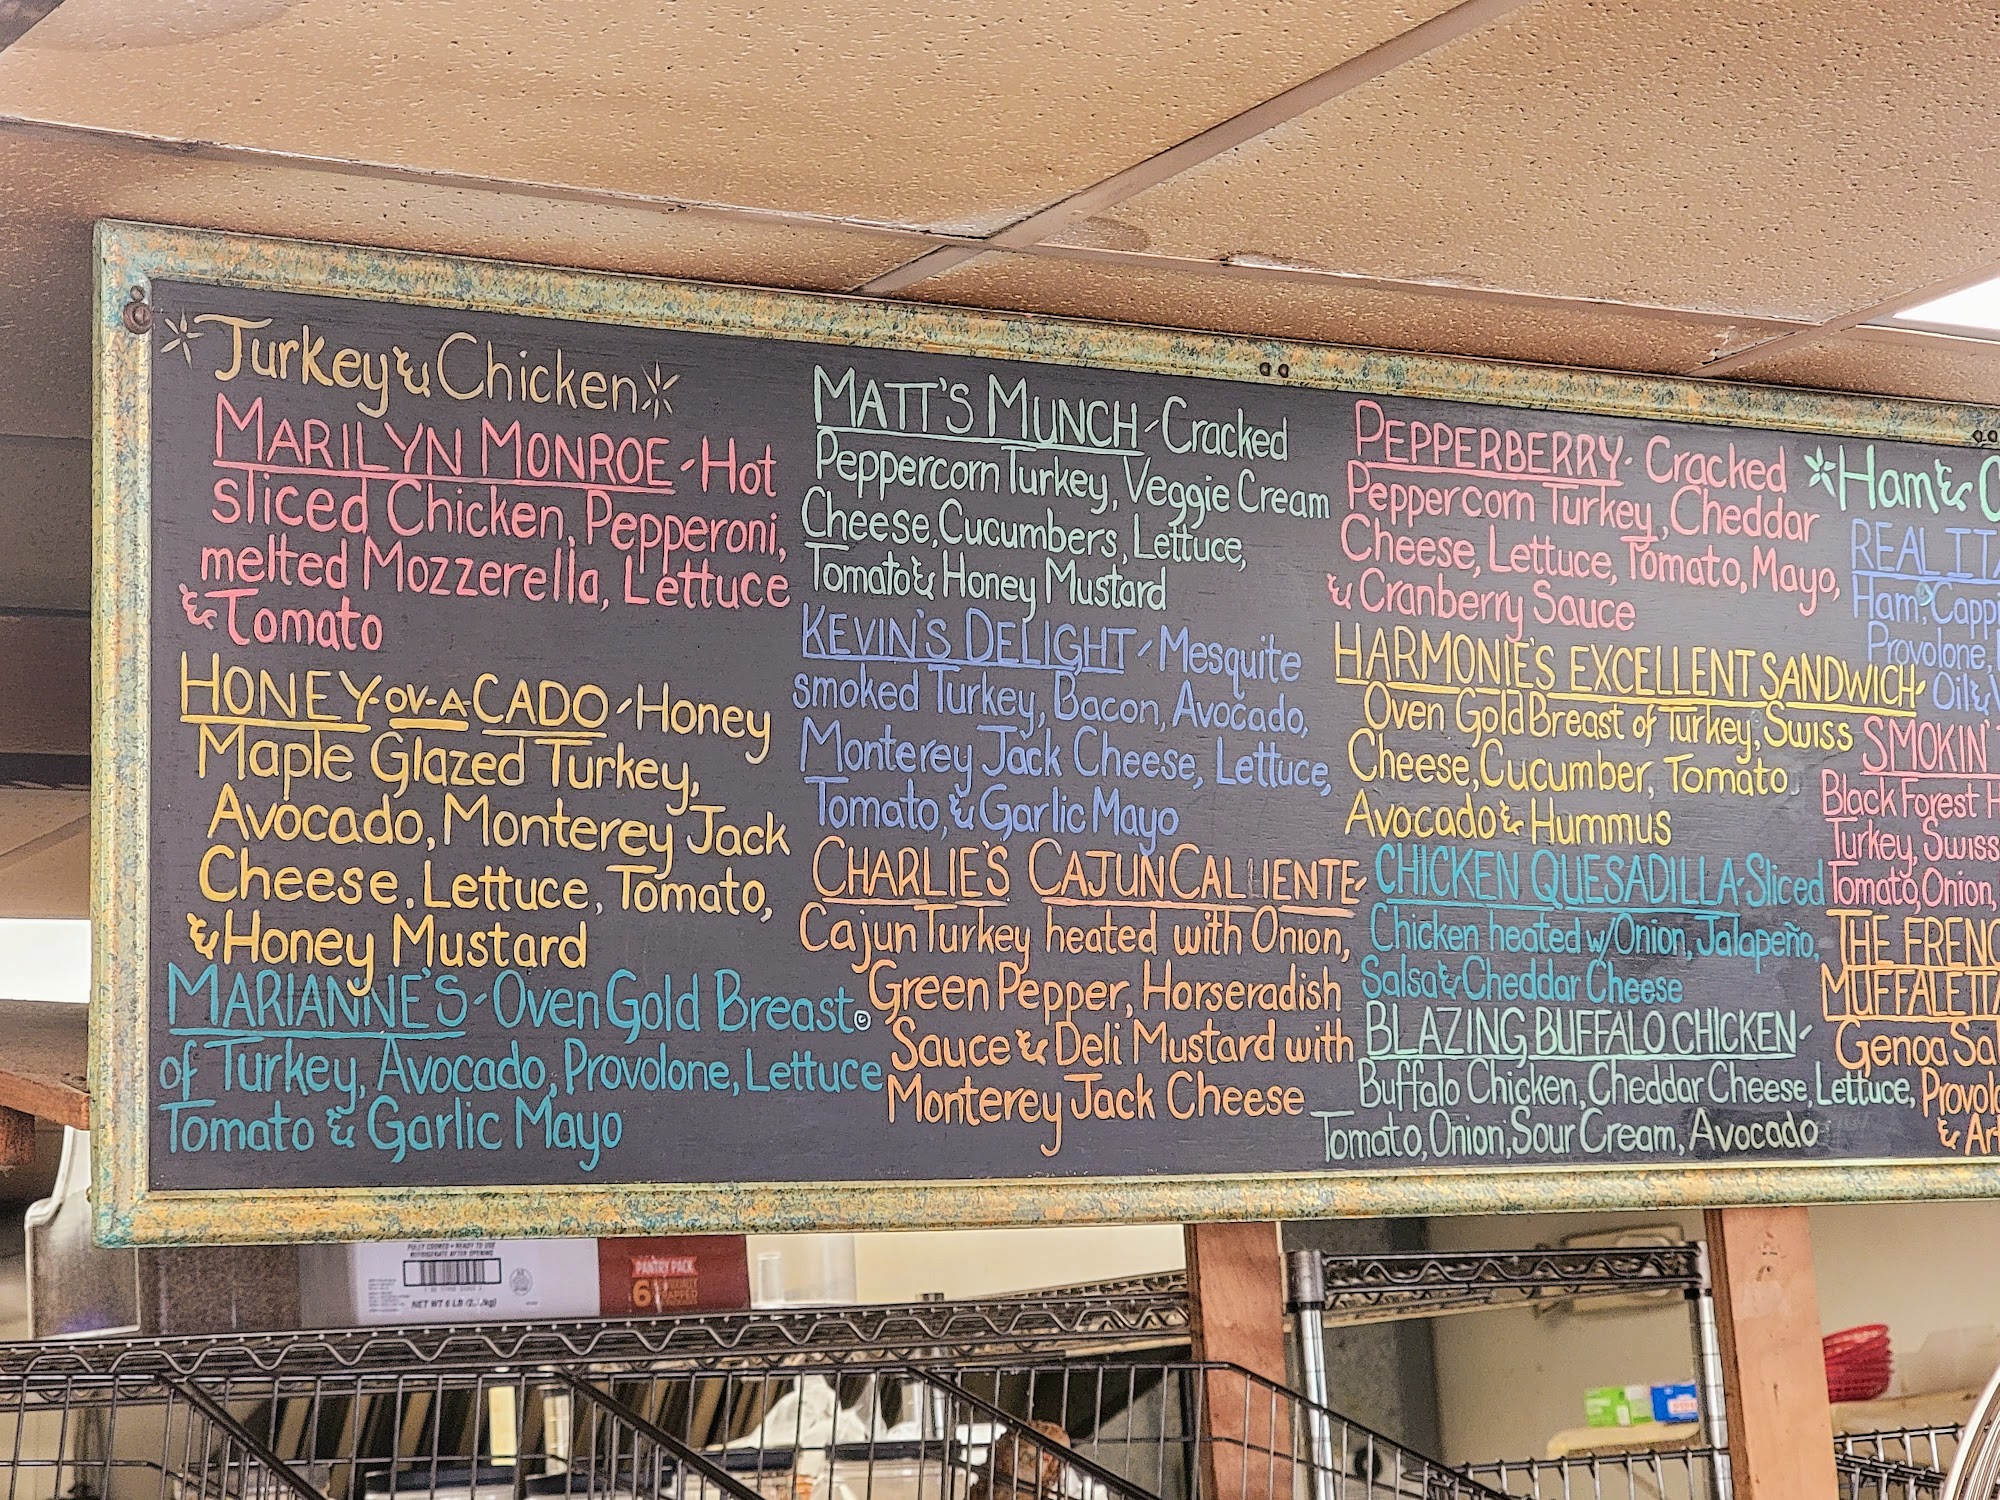 Turkey & Chicken
MARILYN MONROE - Hot
sliced Chicken, Pepperoni,
melted Mozzerella, Lettuce
& Tomato
HONEY-OV-A-CADO - Honey
Maple Glazed Turkey,
Avocado, Monterey Jack
Cheese, Lettuce, Tomato,
& Honey Mustard
MARIANNE'S - Oven Gold Breast
of Turkey, Avocado, Provolone, Lettuce
Tomato & Garlic Mayo
MATT'S MUNCH - Cracked
Peppercorn Turkey, Veggie Cream
Cheese, Cucumbers, Lettuce,
Tomato & Honey Mustard
KEVIN'S DELIGHT - Mesquite
smoked Turkey, Bacon, Avocado,
Monterey Jack Cheese, Lettuce,
Tomato, & Garlic Mayo
CHARLIE'S CAJUN CALIENTE -
Cajun Turkey heated with Onion,
Green Pepper, Horseradish
Sauce & Deli Mustard with
Monterey Jack Cheese
PEPPERBERRY - Cracked
Peppercorn Turkey, Cheddar
Cheese, Lettuce, Tomato, Mayo,
& Cranberry Sauce
HARMONIE'S EXCELLENT SANDWICH -
Oven Gold Breast of Turkey, Swiss
Cheese, Cucumber, Tomato
Avocado & Hummus
CHICKEN QUESADILLA - Sliced
Chicken heated w/ Onion, Jalapeño,
Salsa & Cheddar Cheese
BLAZING BUFFALO CHICKEN -
Buffalo Chicken, Cheddar Cheese, Lettuce,
Tomato, Onion, Sour Cream, Avocado
Ham &
REAL
Ham,
Provolone,
Oil &
SMOKIN'
Black Forest
Turkey, Swiss
Tomato, Onion,
THE
Genoa
&
FULLY COOKED • READY TO USE
REFRIGERATE AFTER OPENING
NET WT 6 LB
PANTRY PACK
6